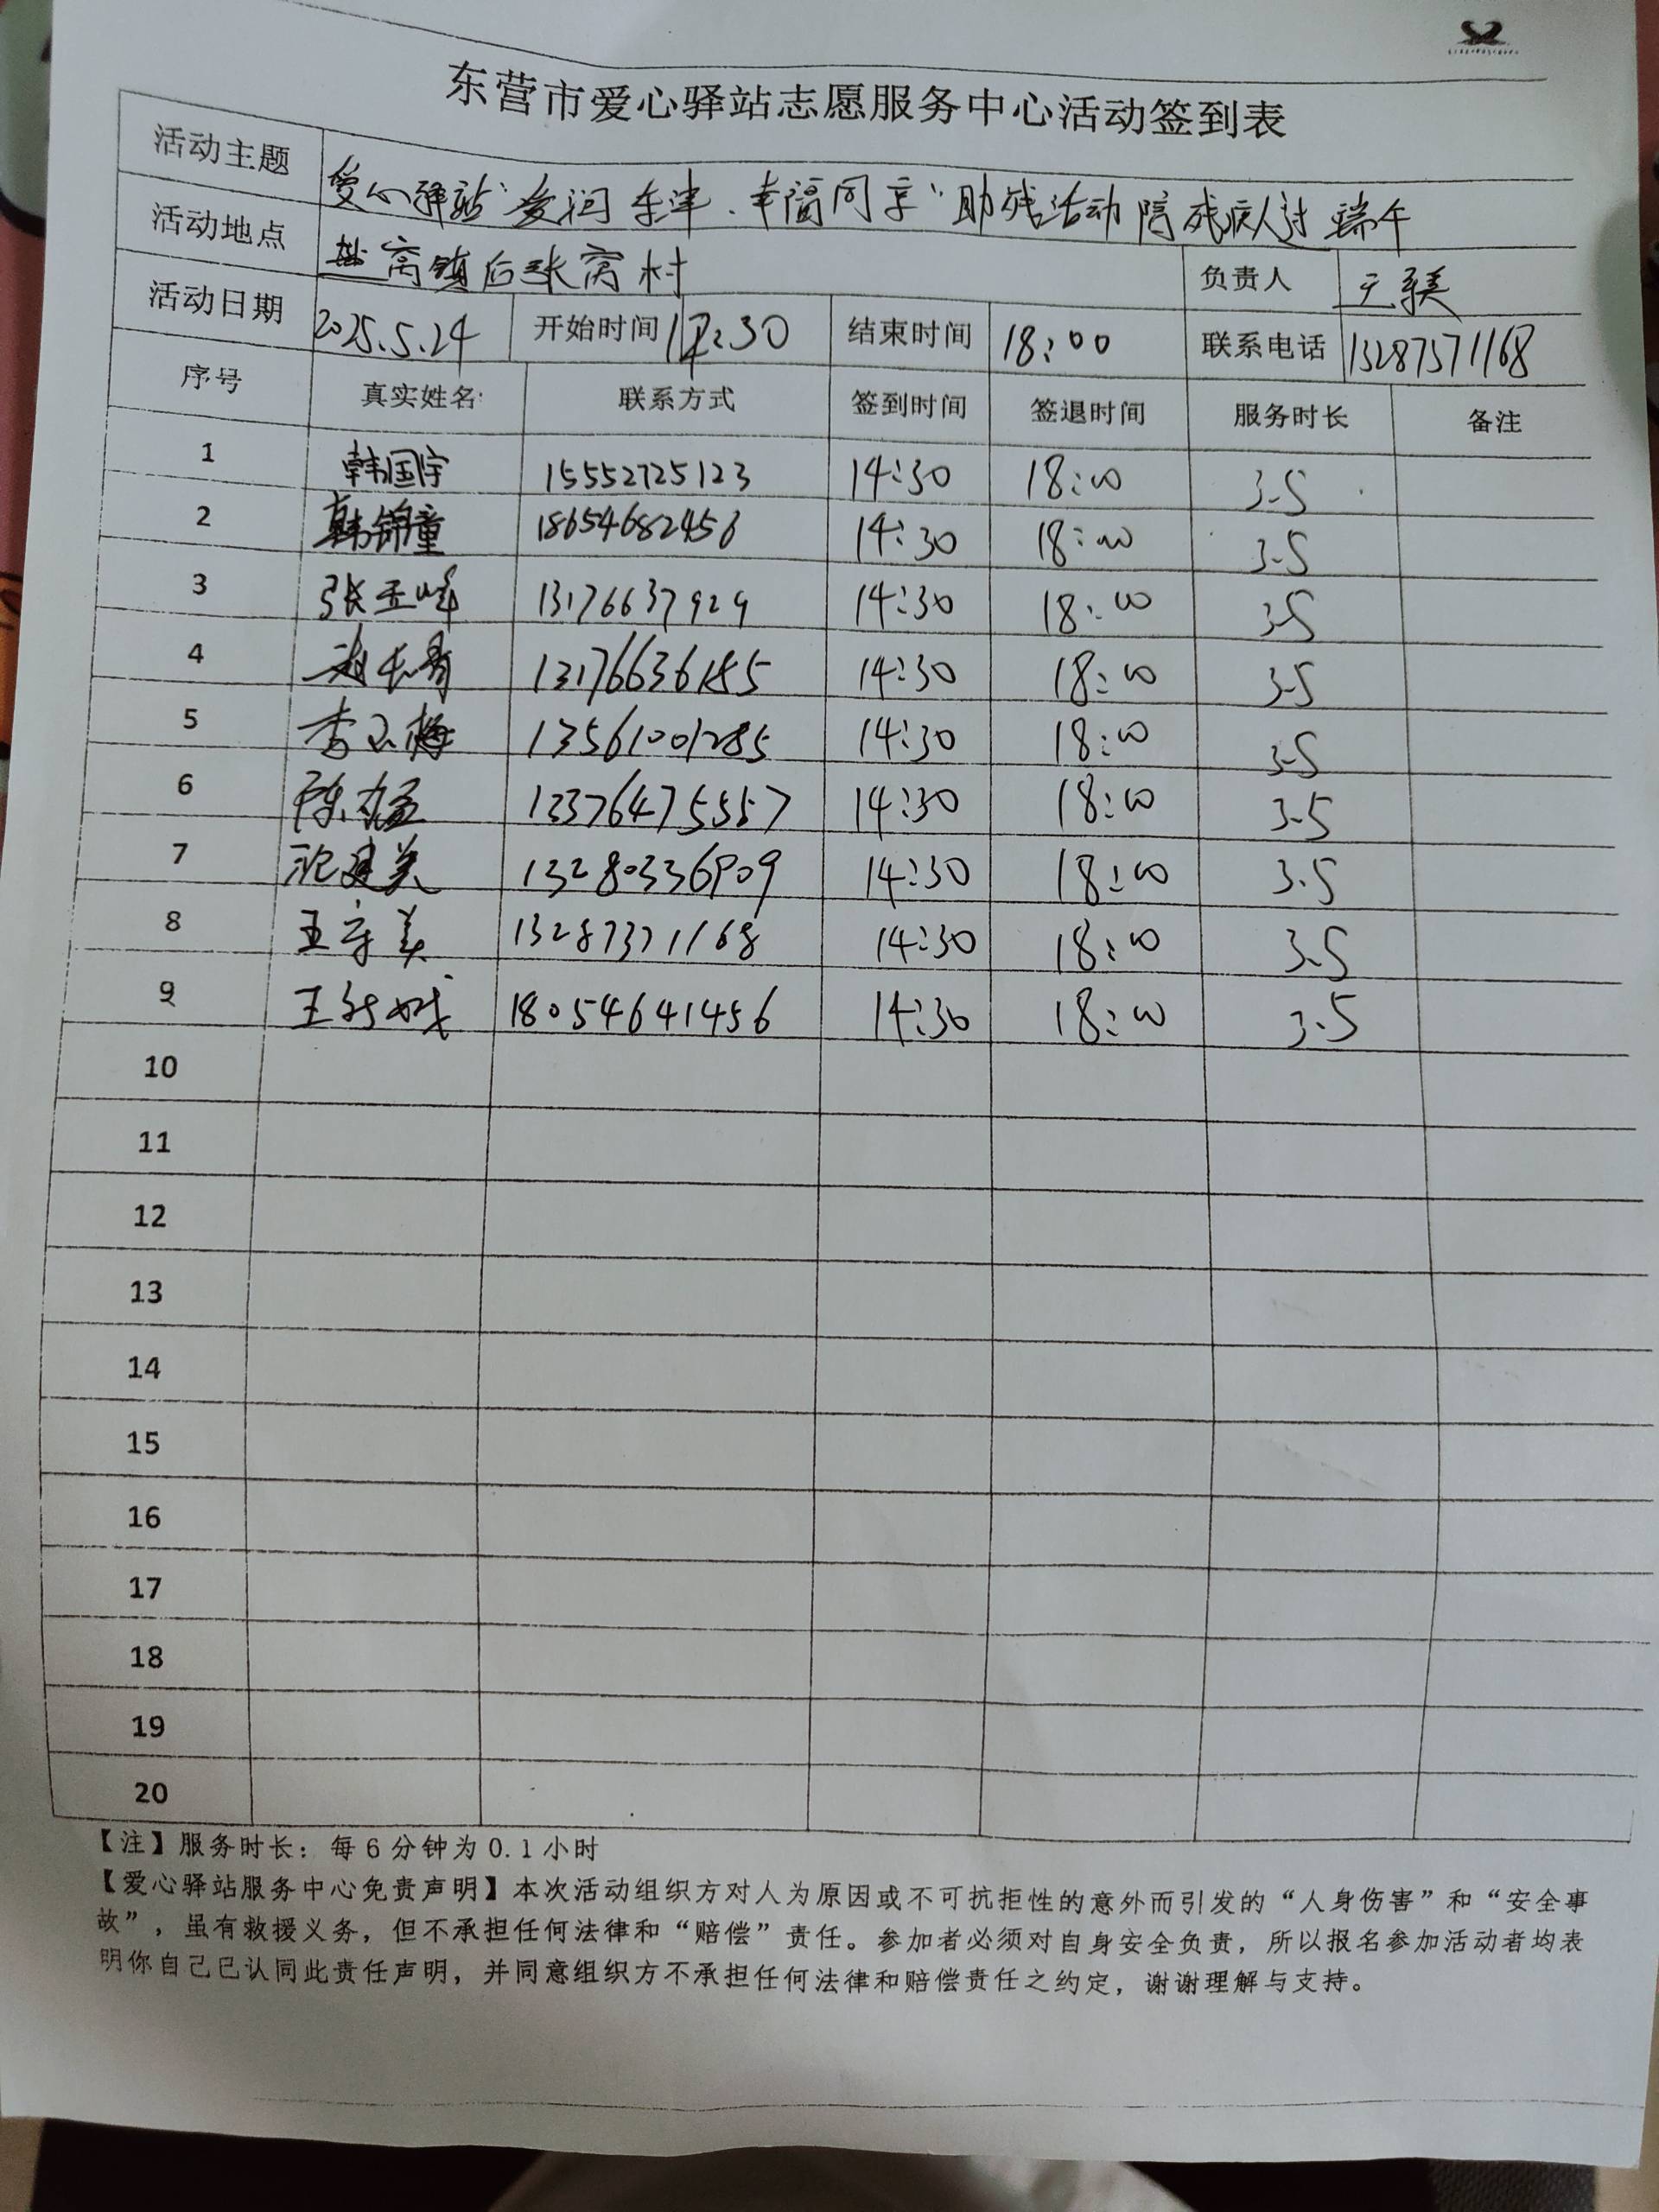 东营市爱心驿站志愿服务中心活动签到表
活动主题 爱心驿站"爱润东津、幸福同享"助残活动陪残疾人过端午
活动地点 盐窝镇后张窝村 负责人
活动日期 2025.5.24 开始时间 14:30 结束时间 18:00 联系电话 13287371168
序号 真实姓名 联系方式 签到时间 签退时间 服务时长 备注
1 韩国宇 15552725123 14:30 18:00 3.5
2 韩锦童 18654682456 14:30 18:00 3.5
3 张玉峰 13176637929 14:30 18:00 3.5
4 13176636185 14:30 18:00 3.5
5 李玉梅 13561001285 14:30 18:00 3.5
6 13376475557 14:30 18:00 3.5
7 13280336909 14:30 18:00 3.5
8 13287371168 14:30 18:00 3.5
9 18054641456 14:30 18:00 3.5
10
11
12
13
14
15
16
17
18
19
20
【注】服务时长：每6分钟为0.1小时
【爱心驿站服务中心免责声明】本次活动组织方对人为原因或不可抗拒性的意外而引发的“人身伤害”和“安全事
故”，虽有救援义务，但不承担任何法律和“赔偿”责任。参加者必须对自身安全负责，所以报名参加活动者均表
明你自己已认同此责任声明，并同意组织方不承担任何法律和赔偿责任之约定，谢谢理解与支持。